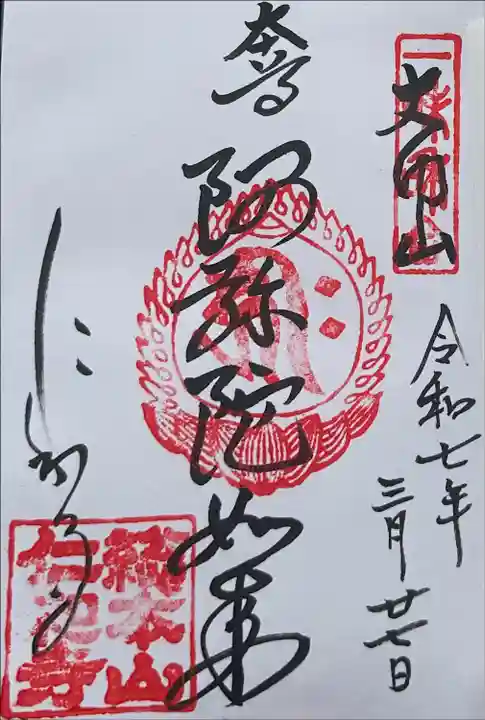 大内山
令和七年
三月廿七日
本尊
阿弥陀如来
仁和寺
總本山
仁和寺